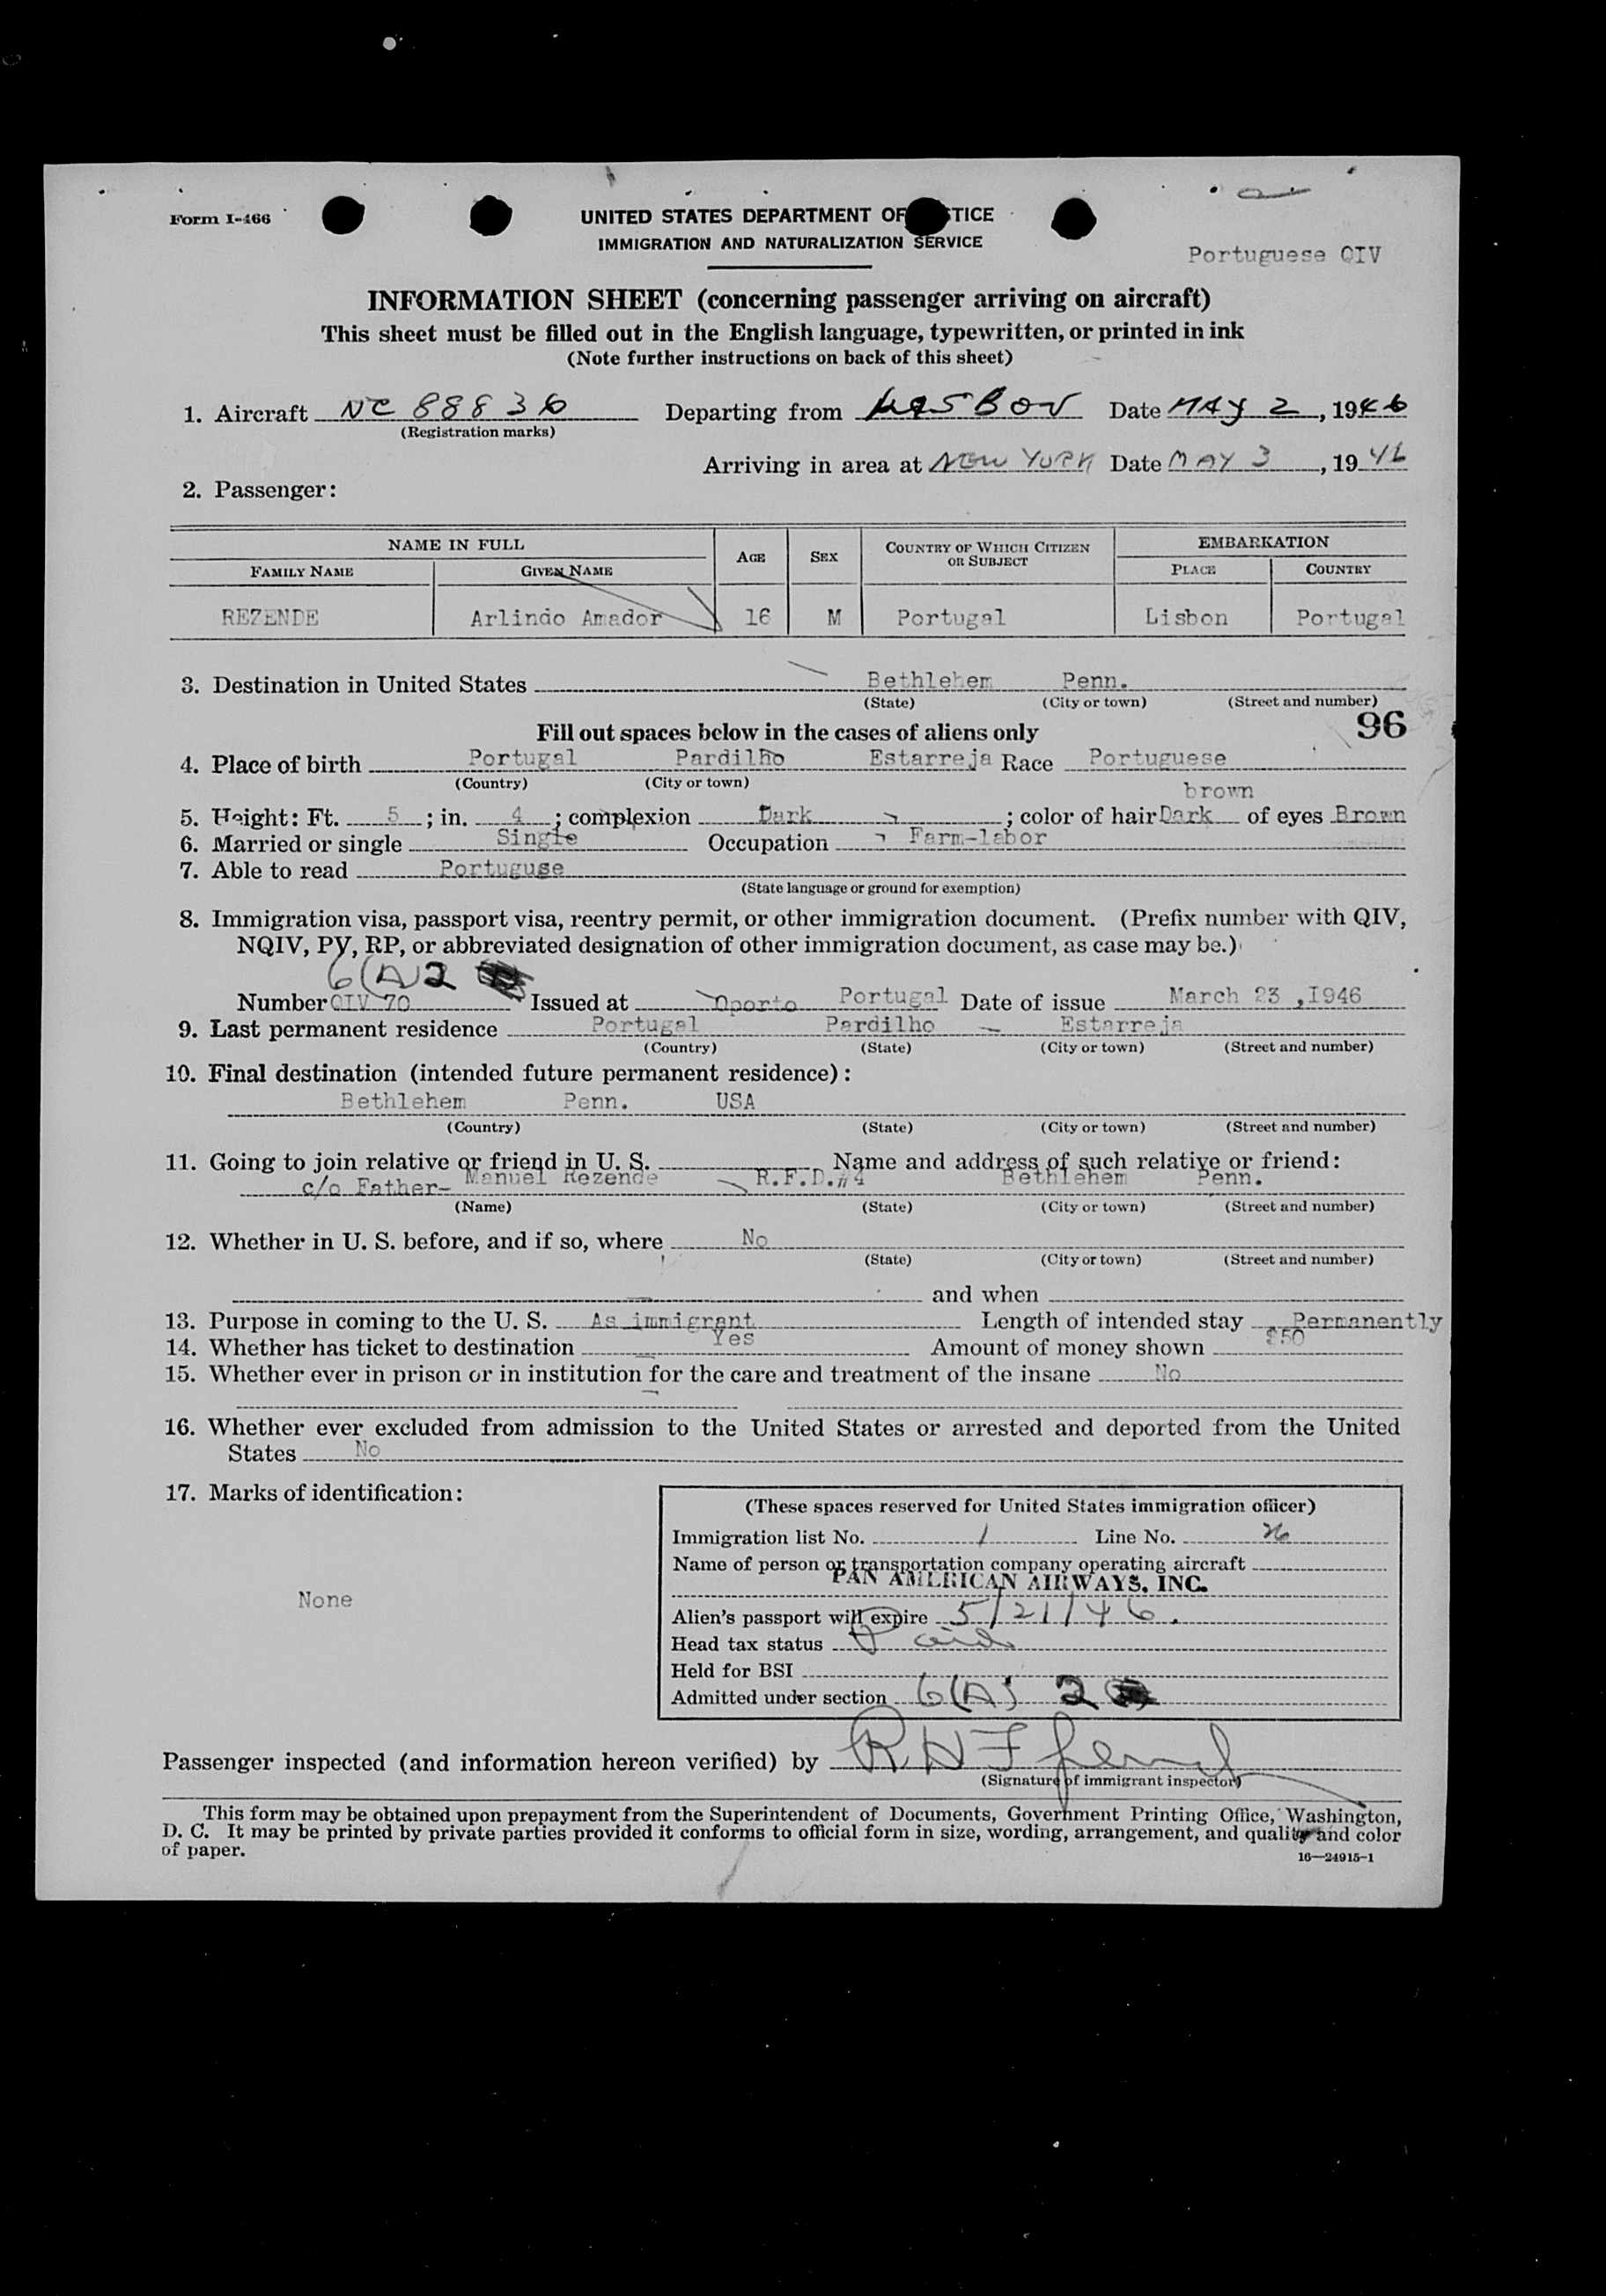 Form I-466
UNITED STATES DEPARTMENT OF TICE
IMMIGRATION AND NATURALIZATION SERVICE
Portuguese QIV
INFORMATION SHEET (concerning passenger arriving on aircraft)
This sheet must be filled out in the English language, typewritten, or printed in ink
(Note further instructions on back of this sheet)
1. Aircraft NC 88836 Departing from LISBON Date MAY 2, 1946
(Registration marks)
Arriving in area at NEW YORK Date MAY 3, 1946
2. Passenger:
NAME IN FULL AGE SEX COUNTRY OF WHICH CITIZEN OR SUBJECT EMBARKATION
FAMILY NAME GIVEN NAME PLACE COUNTRY
REZENDE Arlindo Amador 16 M Portugal Lisbon Portugal
3. Destination in United States Bethlehem Penn.
(State) (City or town) (Street and number)
Fill out spaces below in the cases of aliens only 96
4. Place of birth Portugal Pardilho Estarreja Race Portuguese
(Country) (City or town)
brown
5. Height: Ft. 5; in. 4; complexion Dark; color of hair Dark of eyes Brown
6. Married or single Single Occupation Farm-labor
7. Able to read Portuguse
(State language or ground for exemption)
8. Immigration visa, passport visa, reentry permit, or other immigration document. (Prefix number with QIV,
NQIV, PV, RP, or abbreviated designation of other immigration document, as case may be.)
6(A)2
Number QIV 70 Issued at Oporto Portugal Date of issue March 23, 1946
9. Last permanent residence Portugal Pardilho Estarreja
(Country) (State) (City or town) (Street and number)
10. Final destination (intended future permanent residence):
Bethlehem Penn. USA
(Country) (State) (City or town) (Street and number)
11. Going to join relative or friend in U. S. Name and address of such relative or friend:
c/o Father- Manuel Rezende R.F.D.#4 Bethlehem Penn.
(Name) (State) (City or town) (Street and number)
12. Whether in U. S. before, and if so, where No
(State) (City or town) (Street and number)
and when
13. Purpose in coming to the U. S. As immigrant Length of intended stay Permanently
14. Whether has ticket to destination Yes Amount of money shown $50
15. Whether ever in prison or in institution for the care and treatment of the insane No
16. Whether ever excluded from admission to the United States or arrested and deported from the United
States No
17. Marks of identification:
None
(These spaces reserved for United States immigration officer)
Immigration list No. 1 Line No. 26
Name of person or transportation company operating aircraft
PAN AMERICAN AIRWAYS, INC.
Alien's passport will expire 5/21/46.
Head tax status Paid
Held for BSI
Admitted under section 6(A) 2
Passenger inspected (and information hereon verified) by
(Signature of immigrant inspector)
This form may be obtained upon prepayment from the Superintendent of Documents, Government Printing Office, Washington,
D. C. It may be printed by private parties provided it conforms to official form in size, wording, arrangement, and quality and color
of paper.
16—24915-1